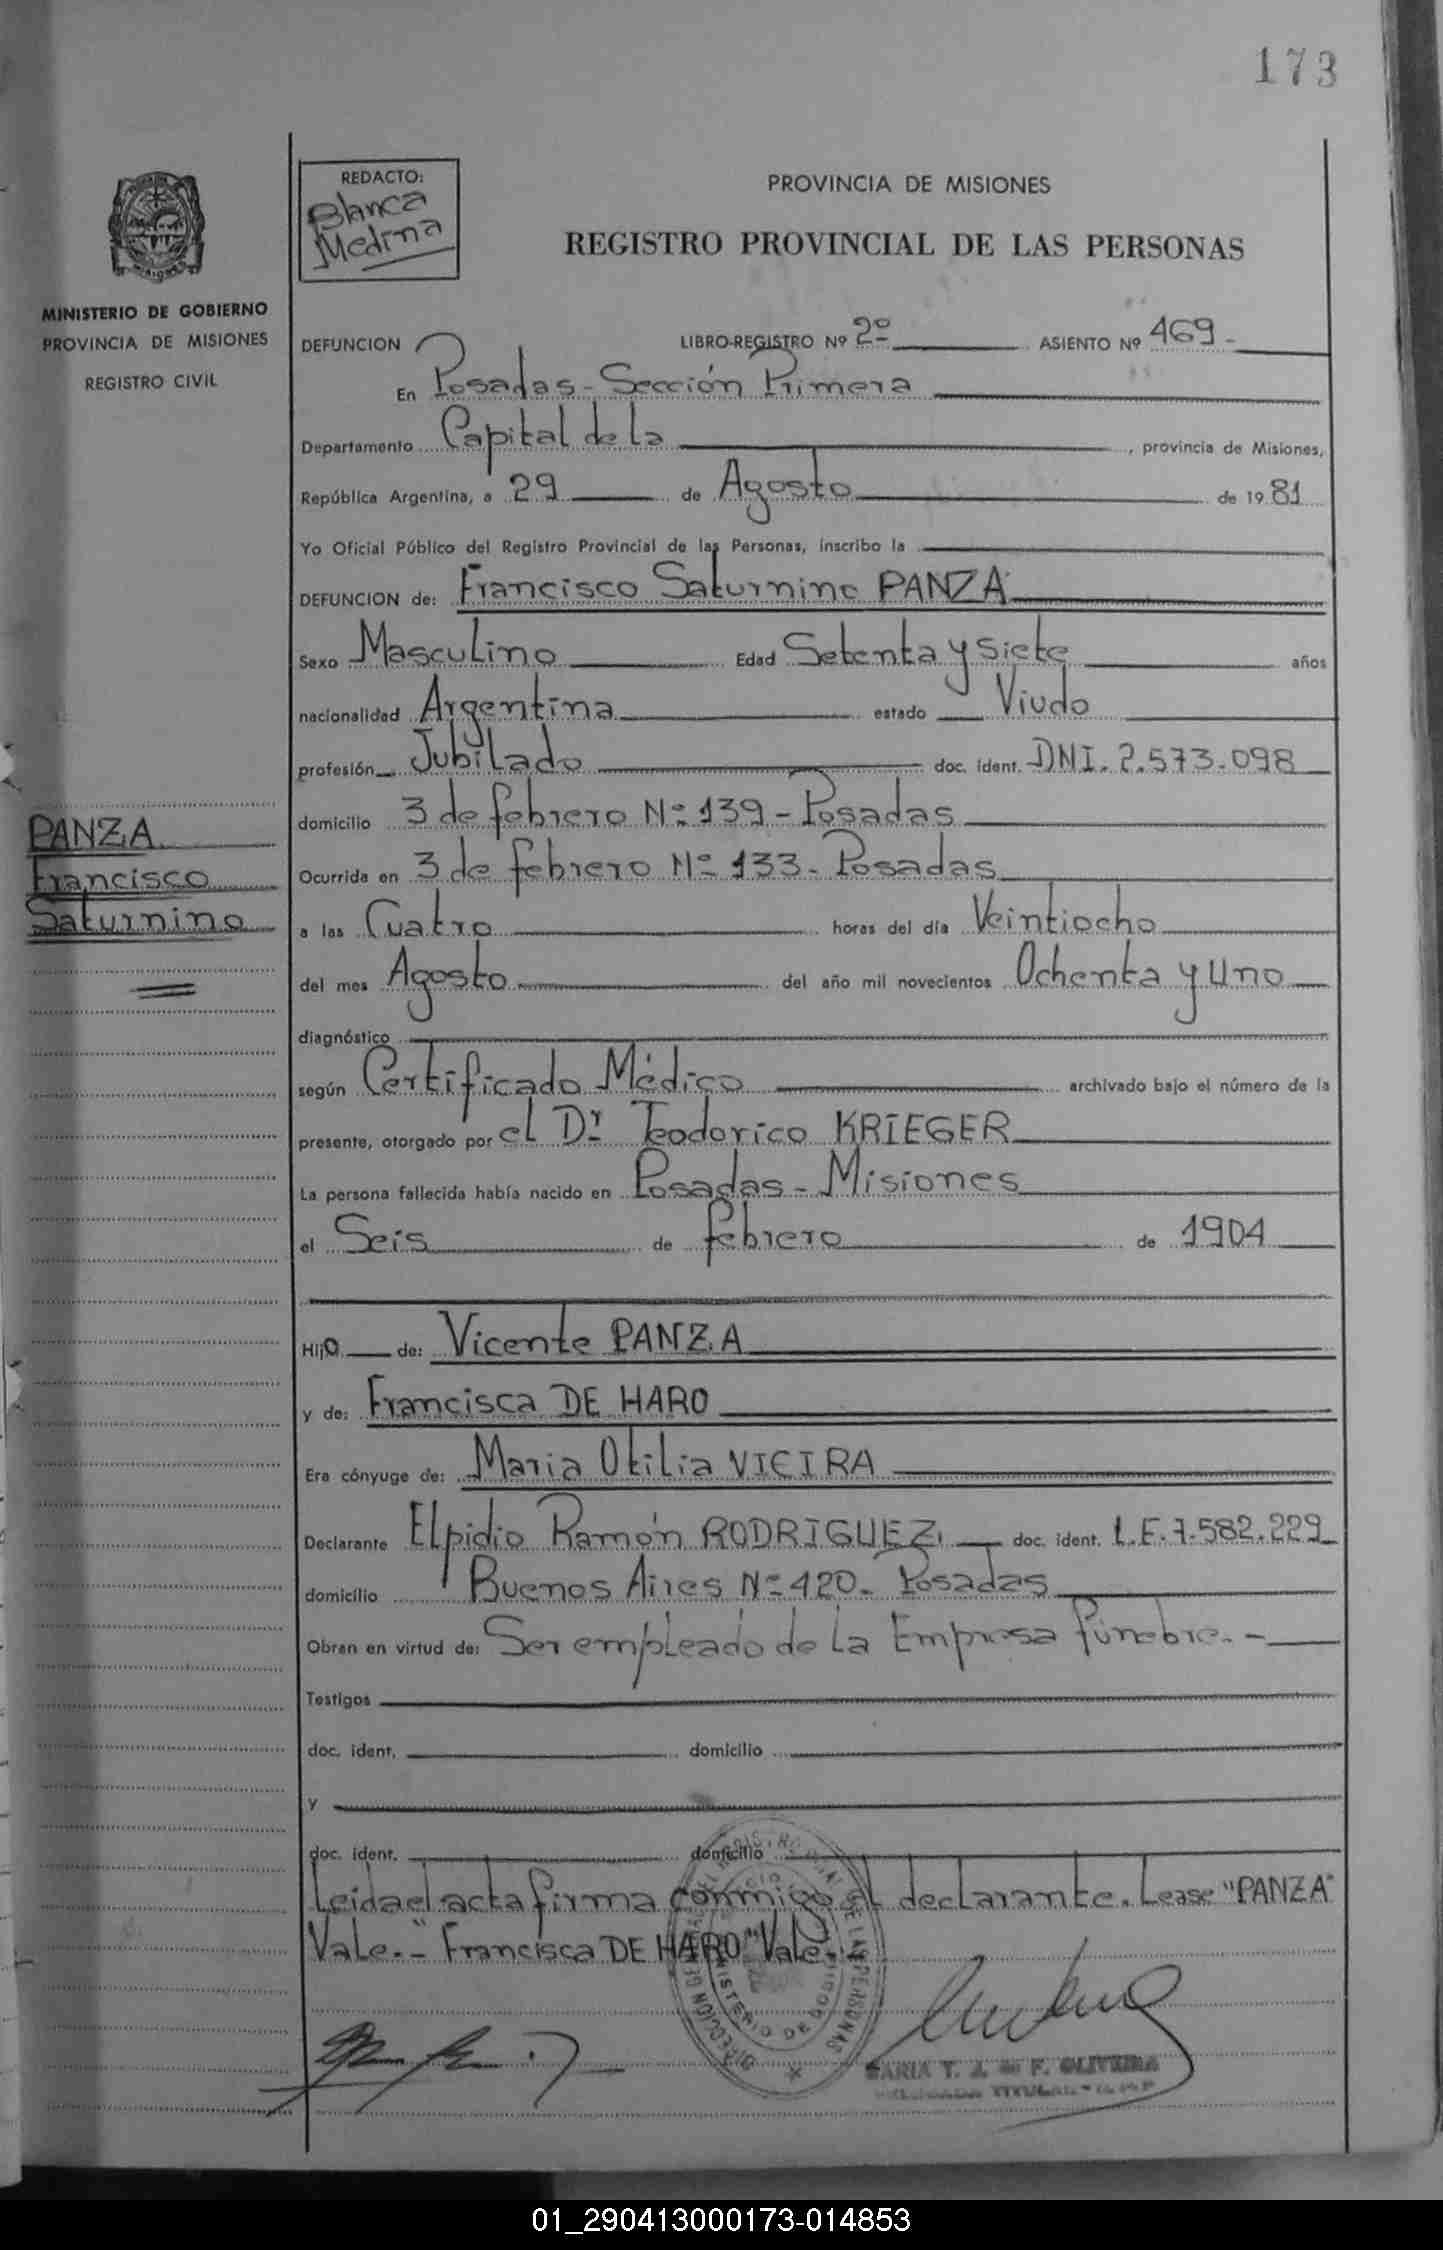 173
REDACTO:
Blanca
Medina
PROVINCIA DE MISIONES
REGISTRO PROVINCIAL DE LAS PERSONAS
MINISTERIO DE GOBIERNO
PROVINCIA DE MISIONES
REGISTRO CIVIL
DEFUNCION LIBRO-REGISTRO Nº 2º ASIENTO Nº 469.-
En Posadas - Sección Primera
Departamento Capital de la , provincia de Misiones,
República Argentina, a 29 de Agosto de 1981
Yo Oficial Público del Registro Provincial de las Personas, inscribo la
DEFUNCION de: Francisco Saturnino PANZA
Sexo Masculino Edad Setenta y siete años
nacionalidad Argentina estado Viudo
profesión Jubilado doc. ident. DNI. 2.573.098
domicilio 3 de febrero Nº 139 - Posadas
PANZA
Francisco
Saturnino
Ocurrida en 3 de febrero Nº 133 - Posadas
a las Cuatro horas del día Veintiocho
del mes Agosto del año mil novecientos Ochenta y Uno
diagnóstico
según Certificado Médico archivado bajo el número de la
presente, otorgado por el Dr Teodorico KRIEGER
La persona fallecida había nacido en Posadas - Misiones
el Seis de febrero de 1904
Hijo de: Vicente PANZA
y de: Francisca DE HARO
Era cónyuge de: Maria Otilia VIEIRA
Declarante Elpidio Ramón RODRIGUEZ doc. ident. L.E. 7.582.229
domicilio Buenos Aires Nº 420 - Posadas
Obran en virtud de: Ser empleado de la Empresa fúnebre.-
Testigos
doc. ident. domicilio
y
doc. ident. domicilio
Leida el acta firma conmigo el declarante. Lease "PANZA"
Vale.- "Francisca DE HARO" Vale.-
MINISTERIO DE GOBIERNO
MARIA T. J. de F. OLIVEIRA
01_290413000173-014853